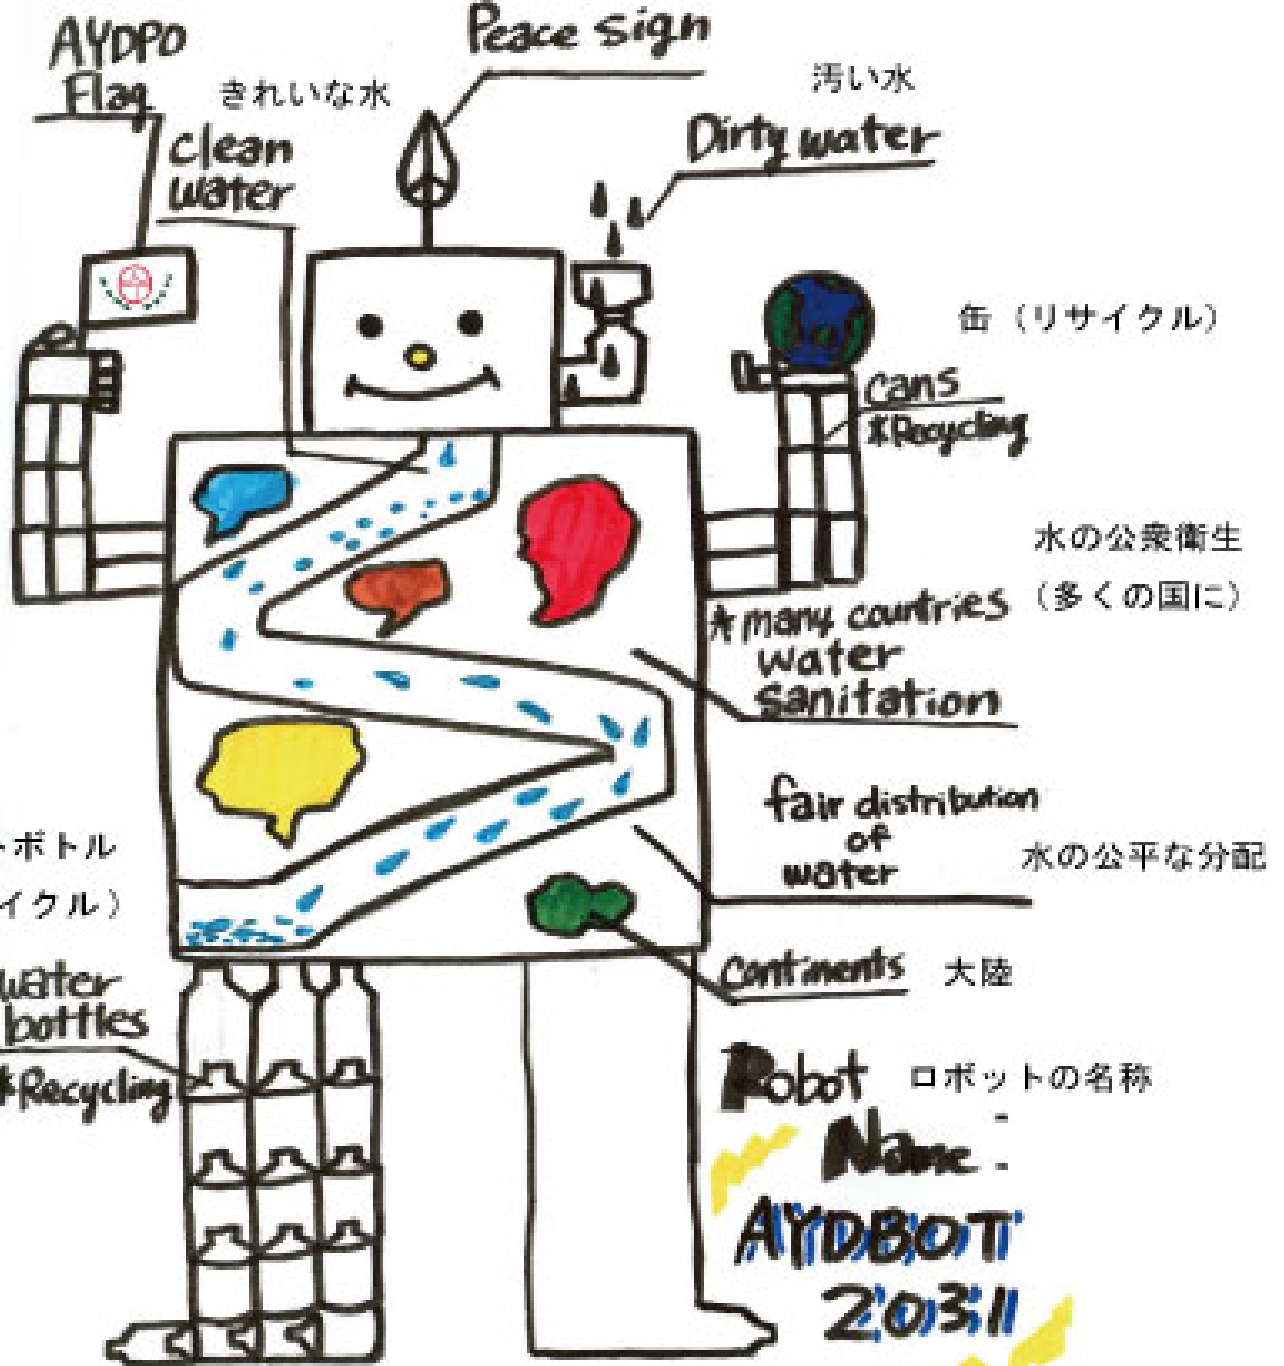 AYDPO
Flag
きれいな水
clean
water
Peace sign
汚い水
Dirty water
缶（リサイクル）
cans
*Recycling
水の公衆衛生
（多くの国に）
*many countries
water
sanitation
fair distribution
of
water
水の公平な分配
トボトル
イクル）
water
bottles
*Recycling
continents
大陸
Robot
ロボットの名称
Name:
AYDBOT
2031